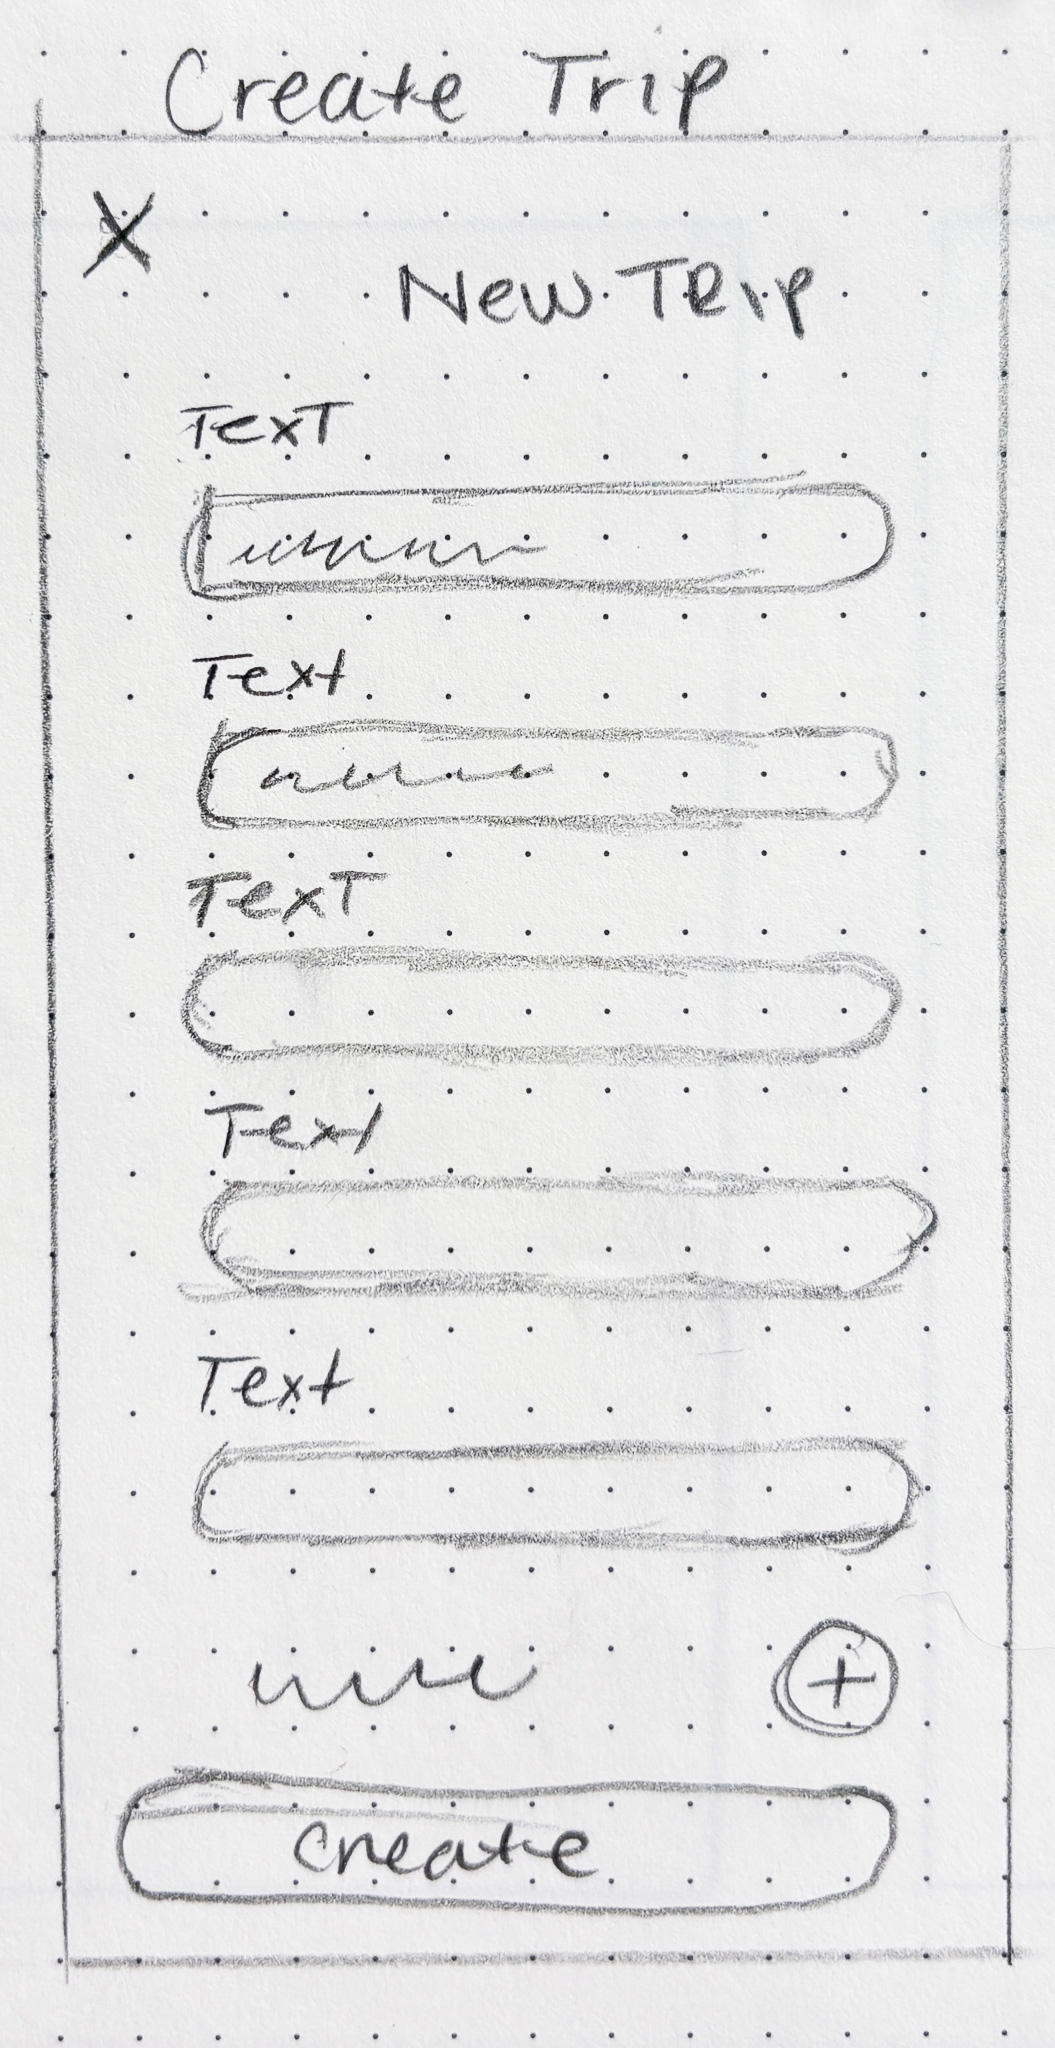 Create Trip
X
New TRip
TexT
Text
TexT
Text
Text
+
create